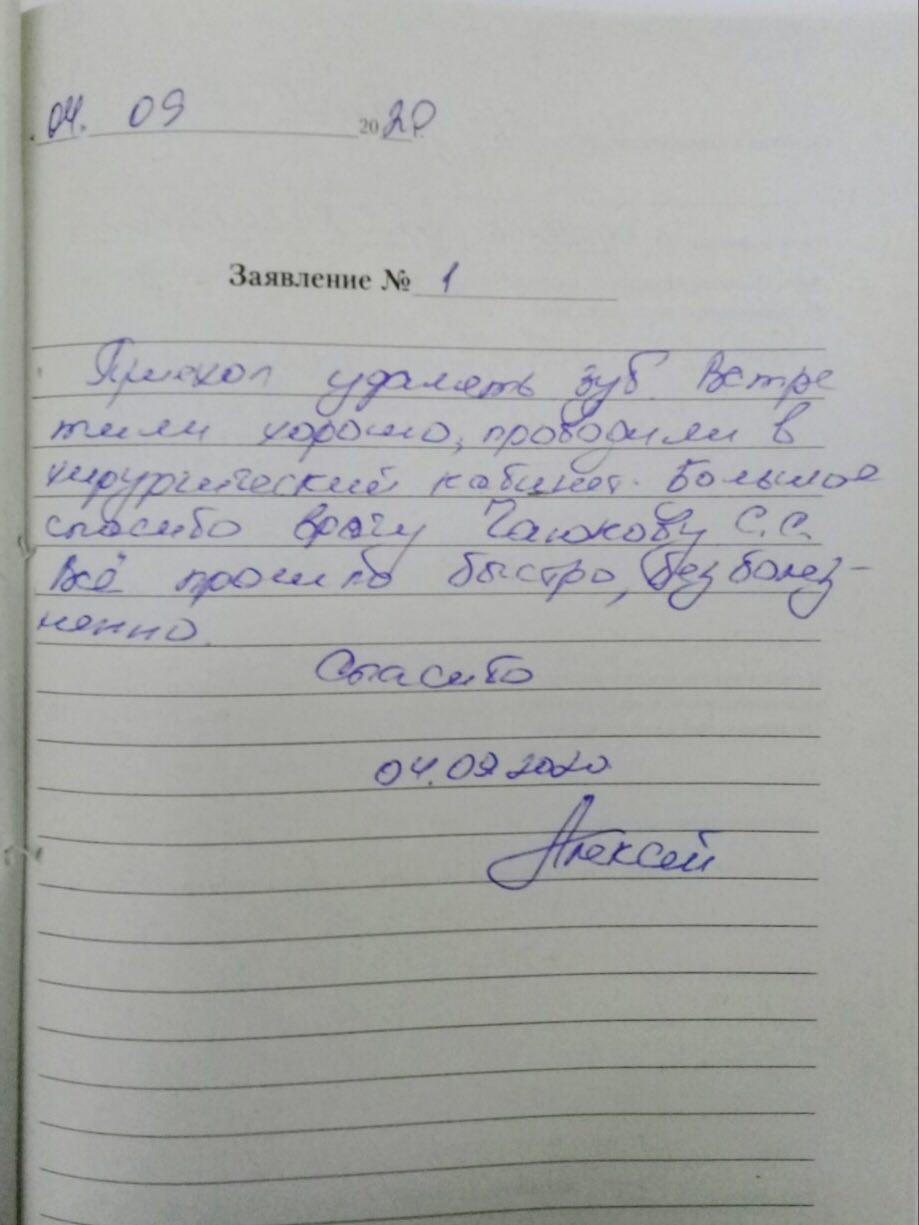 04. 09 2020г.
Заявление № 1
Приехал удалять зуб. Встре
тили хорошо, проводили в
хирургический кабинет. Большое
спасибо врачу С.С.
Всё прошло быстро, безболез-
ненно.
Спасибо
04.09.2020
Алексей